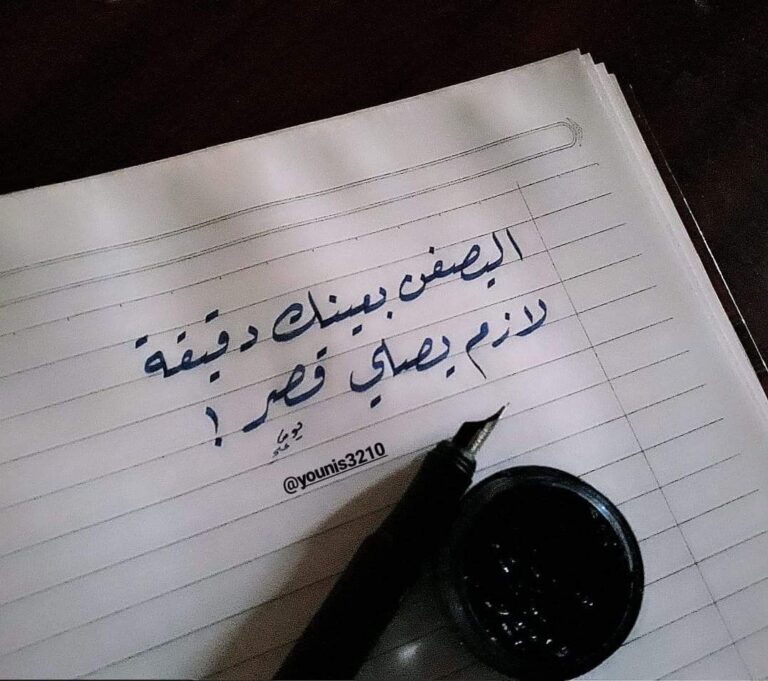 اليصفن بعينك دقيقة
لازم يصلي قصر !
@younis3210